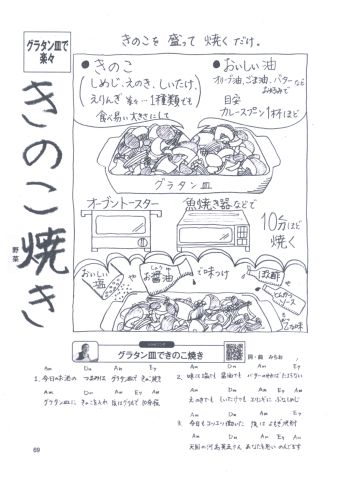 グラタン皿で
楽々
きのこ焼き
野菜
きのこを 盛って 焼くだけ。
●きのこ
しめじ、えのき、しいたけ、
えりんぎ 等々…1種類でも
食べ易い大きさにして
●おいしい油
オリーブ油、ごま油、バターなど
お好みで
目安
カレースプーン1杯ほど
グラタン皿
オーブントースター
魚焼き器などで
10分ほど
焼く
おいしい
塩
や
しょう
お醤油
で味つけ
ポン酢
とんかつ
ソース
グラタン皿できのこ焼き
詞・曲 みちお
Am Dm Am E7
1. 今日のお酒の つまみは グラタン皿で きのこ焼き
Am Dm E7 Am
グラタン皿に きのこを入れ
Am Dm Am E7
2. 味は塩でも 醤油でも バターのせれば たまらない
Am Dm E7 Am
えのきでも しいたけでも エリンギに ぶなしめじ
Am Dm Am E7
3. 今日もコツコツ働いた
Am Dm E7 Am
あなたを思い のんでます
69